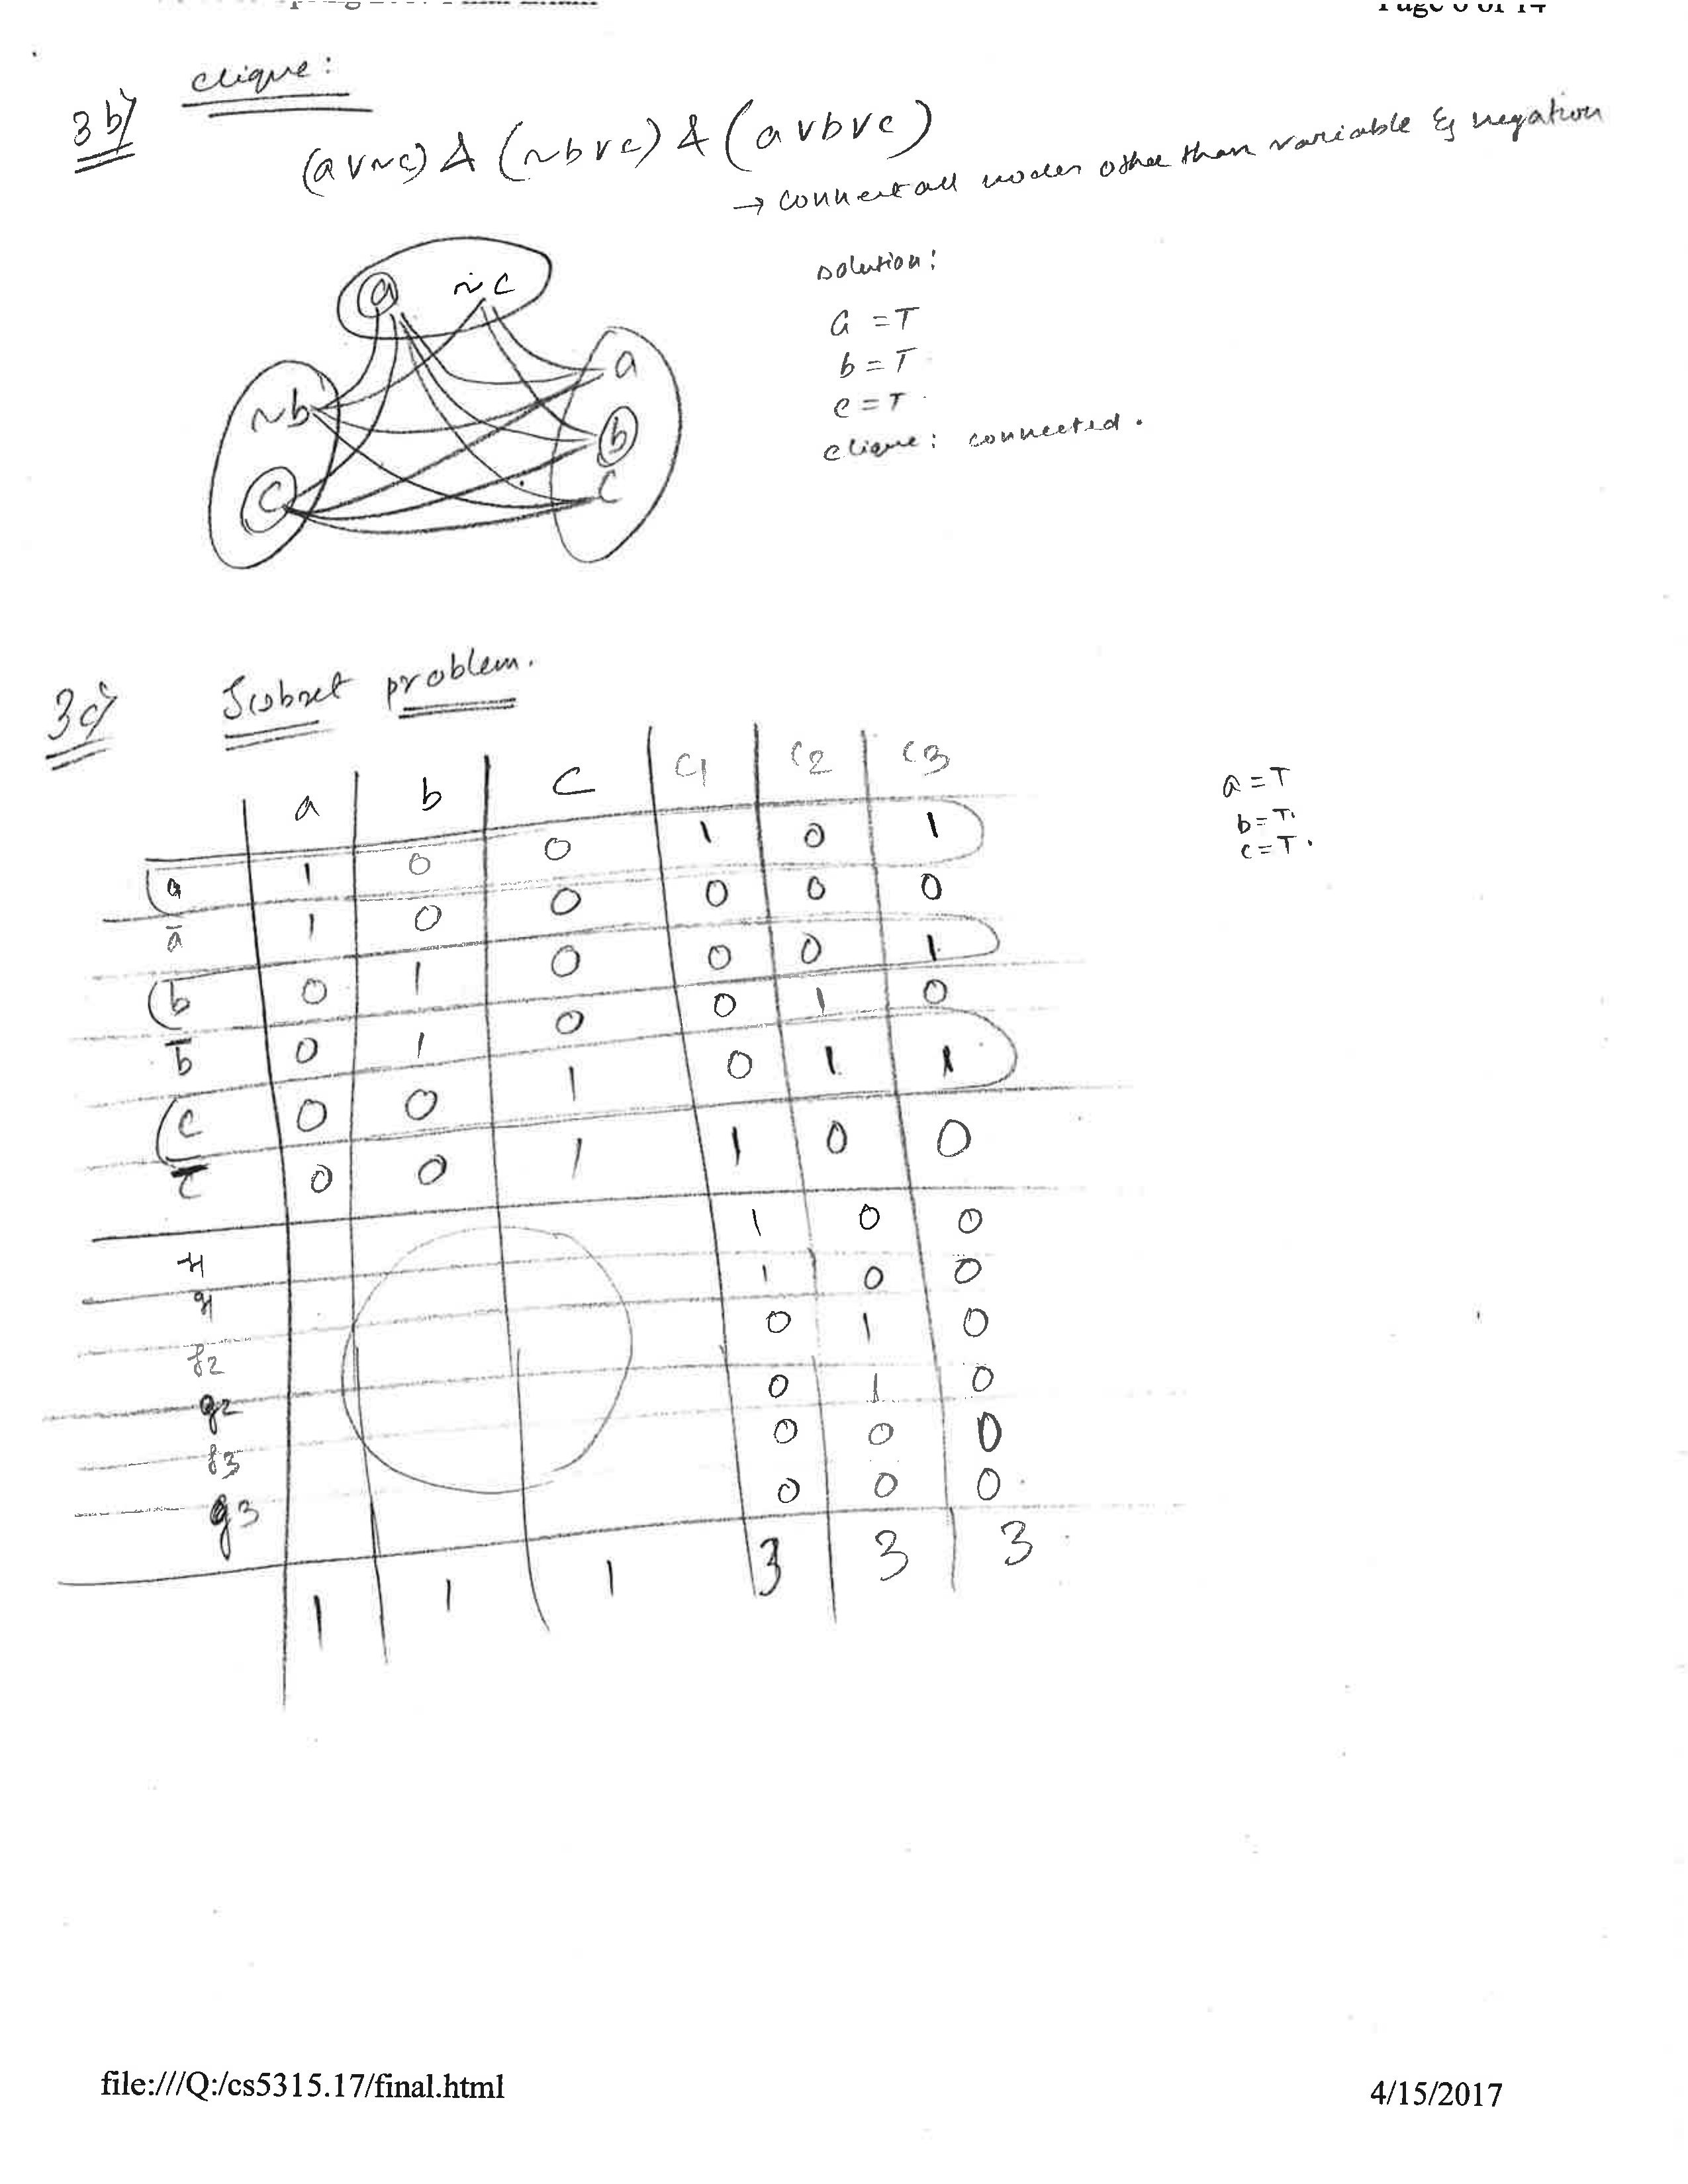 3b) clique:
(a v ~c) & (~b v c) & (a v b v c)
→ connect all nodes other than variable & negation
a ~c
~b
c
a
b
c
solution:
a = T
b = T
c = T
clique: connected.
3c) Subset problem.
a b c C1 C2 C3
a 1 0 0 1 0 1
a̅ 1 0 0 0 0 0
b 0 1 0 0 0 1
b̅ 0 1 0 0 1 0
c 0 0 1 0 1 1
c̅ 0 0 1 1 0 0
1 0 0
1 0 0
f2 0 1 0
g2 0 1 0
f3 0 0 0
g3 0 0 0
1 1 1 3 3 3
a = T
b = T.
c = T.
file:///Q:/cs5315.17/final.html
4/15/2017